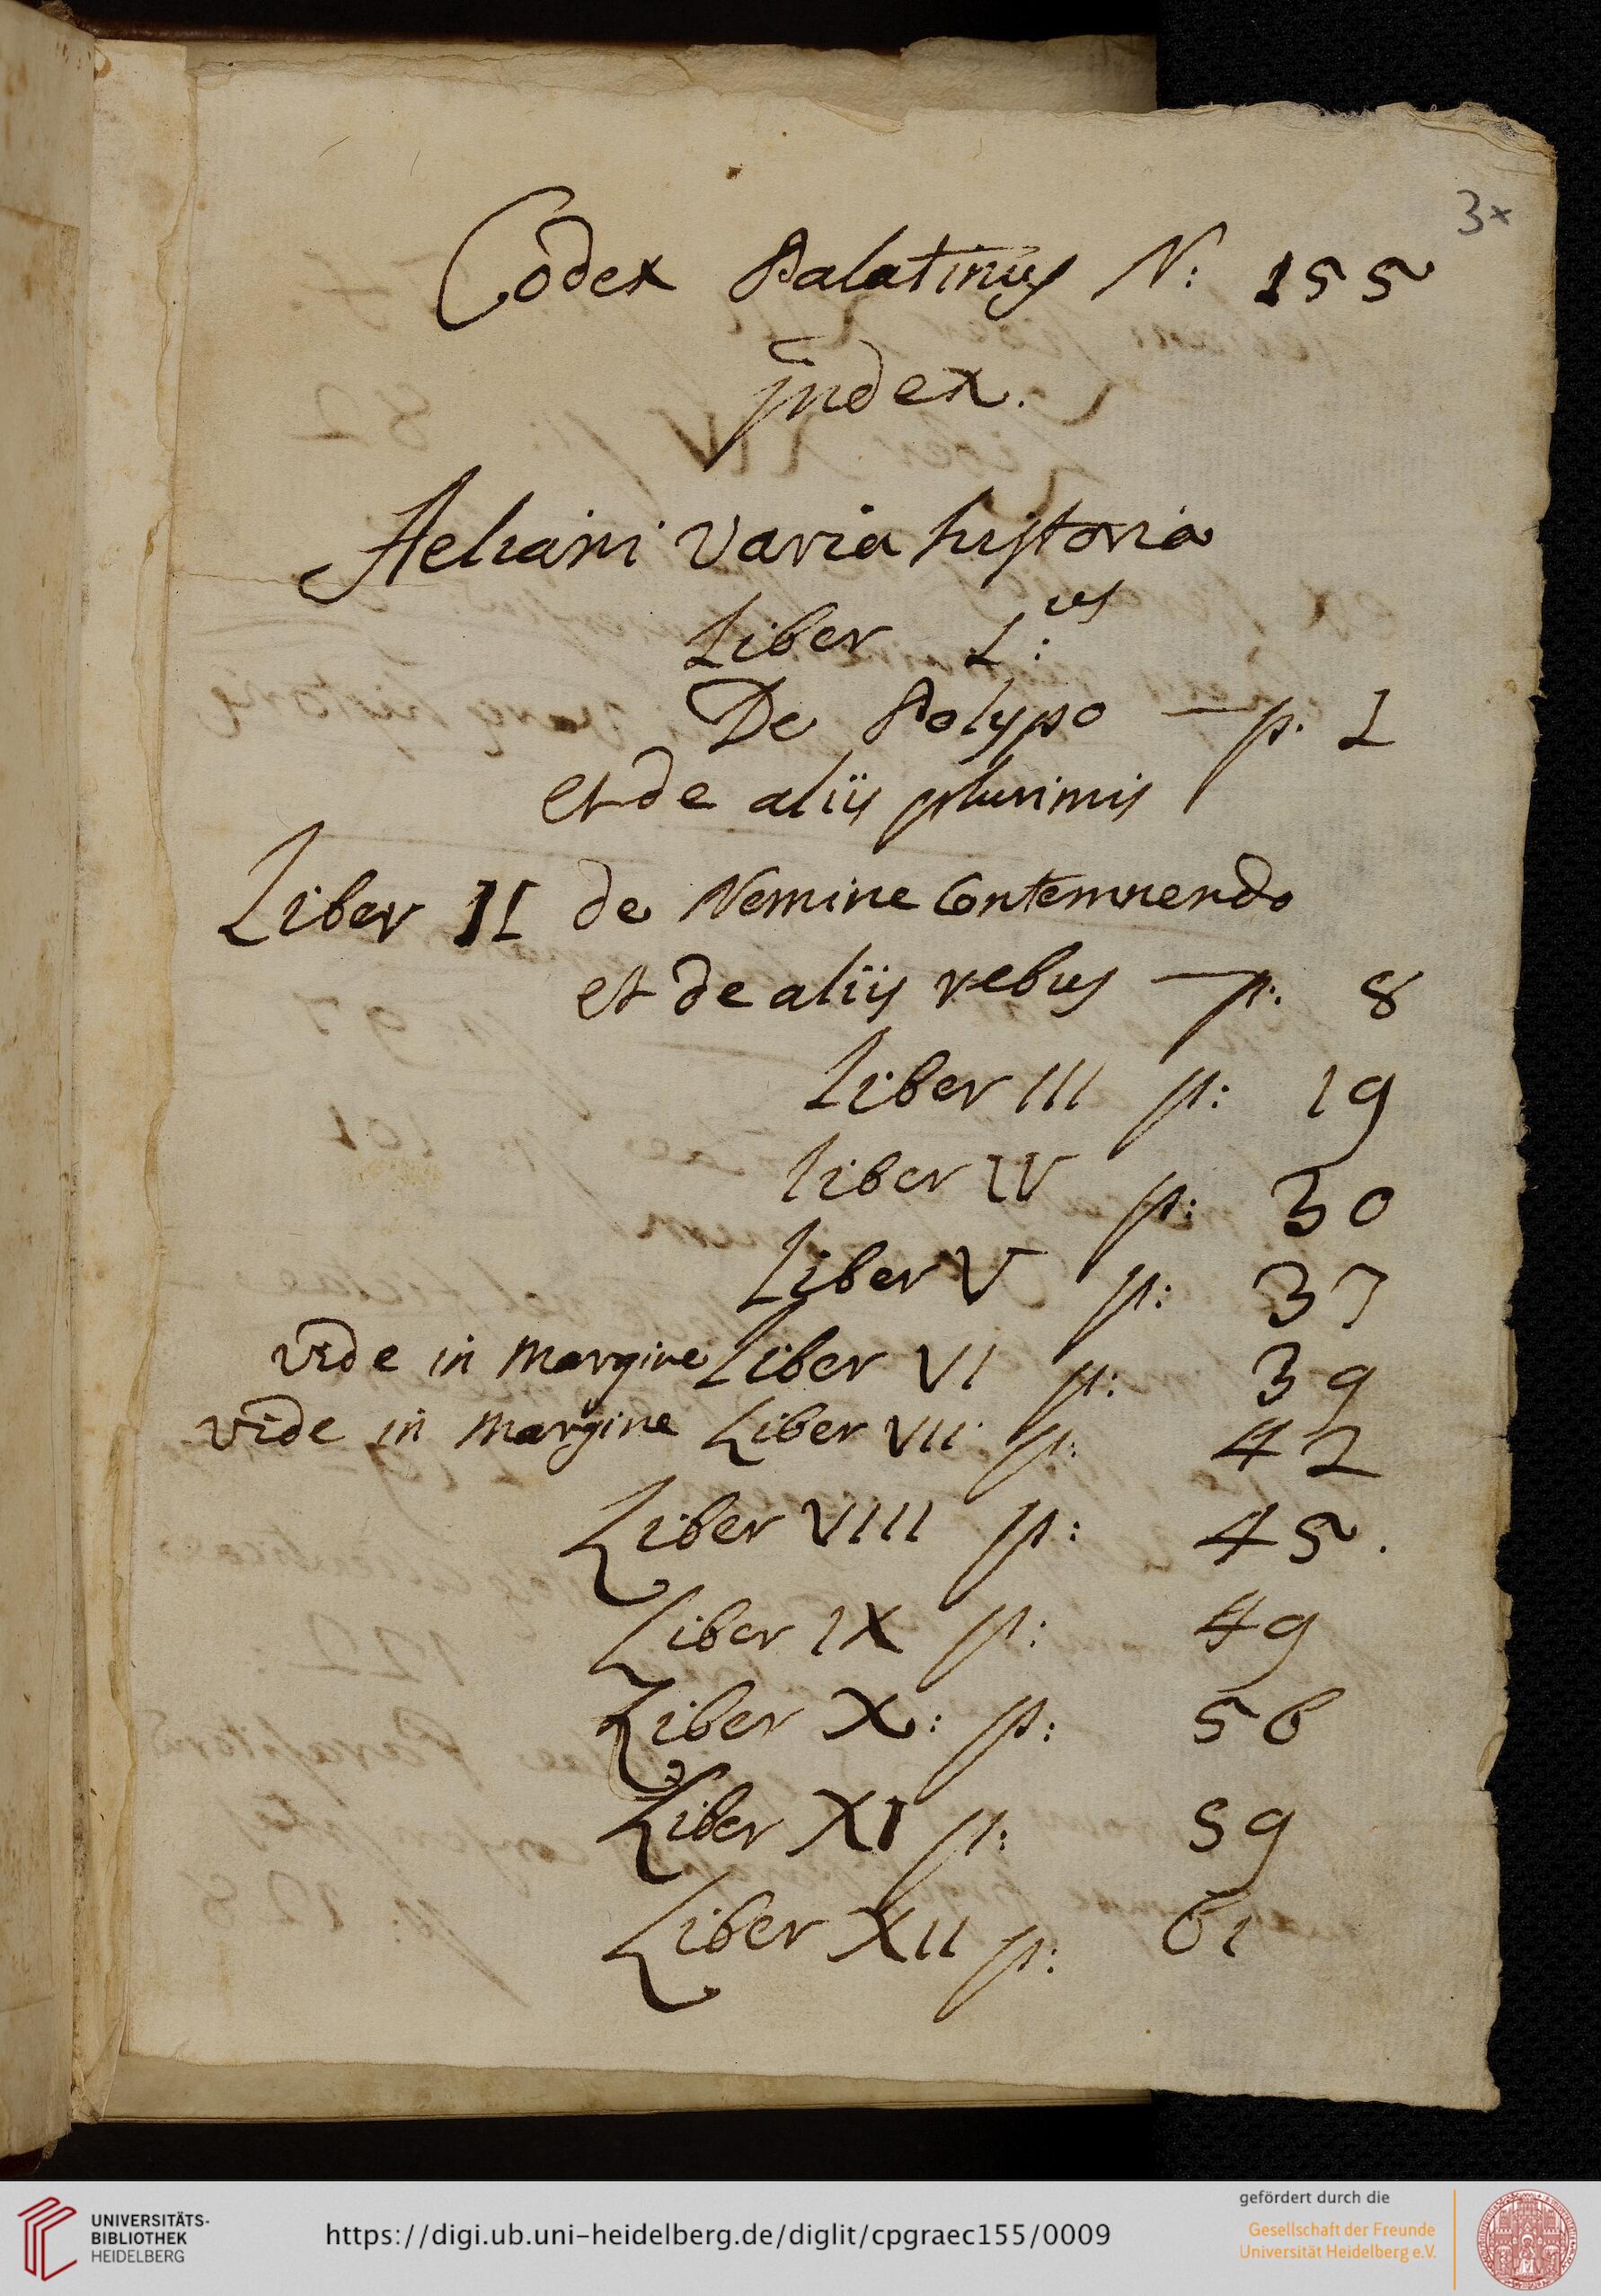 3x
Codex Palatinus N: 155
jndex.
Aeliani varia historia
Liber I:us
De Polypo — p. 1
et de aliis plurimis
Liber II de Nemine Contemnendo
et de aliis rebus — p: 8
Liber III p: 19
Liber IV p: 30
Liber V p: 37
vide in margine Liber VI p: 39
vide in margine Liber VII p: 42
Liber VIII p: 45.
Liber IX p: 49
Liber X: p: 56
Liber XI p: 59
Liber XII p: 61
UNIVERSITÄTS-
BIBLIOTHEK
HEIDELBERG
https://digi.ub.uni-heidelberg.de/diglit/cpgraec155/0009
gefördert durch die
Gesellschaft der Freunde
Universität Heidelberg e.V.